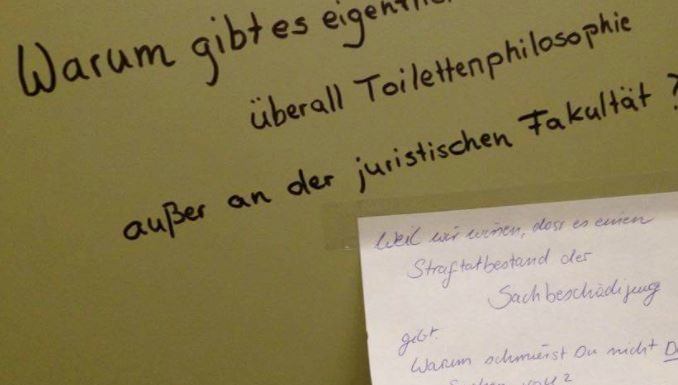 Warum gibt es
überall Toilettenphilosophie
außer an der juristischen Fakultät?
Weil wir wissen, dass es einen
Straftatbestand der
Sachbeschädigung
gibt.
Warum schmierst Du nicht